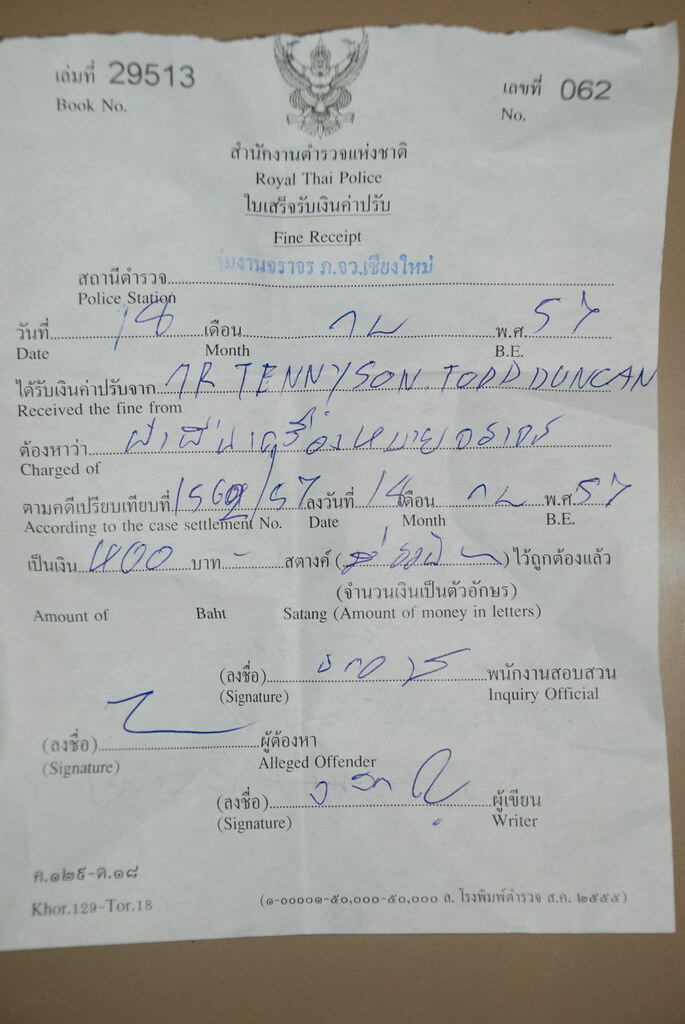 เล่มที่ 29513
Book No.
เลขที่ 062
No.
สำนักงานตำรวจแห่งชาติ
Royal Thai Police
ใบเสร็จรับเงินค่าปรับ
Fine Receipt
งานจราจร ภ.จว.เชียงใหม่
สถานีตำรวจ
Police Station
วันที่ 18 เดือน กพ พ.ศ. 57
Date Month B.E.
ได้รับเงินค่าปรับจาก MR TENNYSON TODD DUNCAN
Received the fine from
ต้องหาว่า ฝ่าฝืนเครื่องหมายจราจร
Charged of
ตามคดีเปรียบเทียบที่ /57 ลงวันที่ 18 เดือน กพ พ.ศ. 57
According to the case settlement No. Date Month B.E.
เป็นเงิน 400 บาท - สตางค์ (สี่ร้อย) ไว้ถูกต้องแล้ว
(จำนวนเงินเป็นตัวอักษร)
Amount of Baht Satang (Amount of money in letters)
(ลงชื่อ) พนักงานสอบสวน
(Signature) Inquiry Official
(ลงชื่อ) ผู้ต้องหา
(Signature) Alleged Offender
(ลงชื่อ) ผู้เขียน
(Signature) Writer
ค.๑๒๙-ต.๑๘
Khor.129-Tor.18
(๑-๐๐๐๐๑-๕๐,๐๐๐-๕๐,๐๐๐ ล. โรงพิมพ์ตำรวจ ส.ค. ๒๕๕๕)